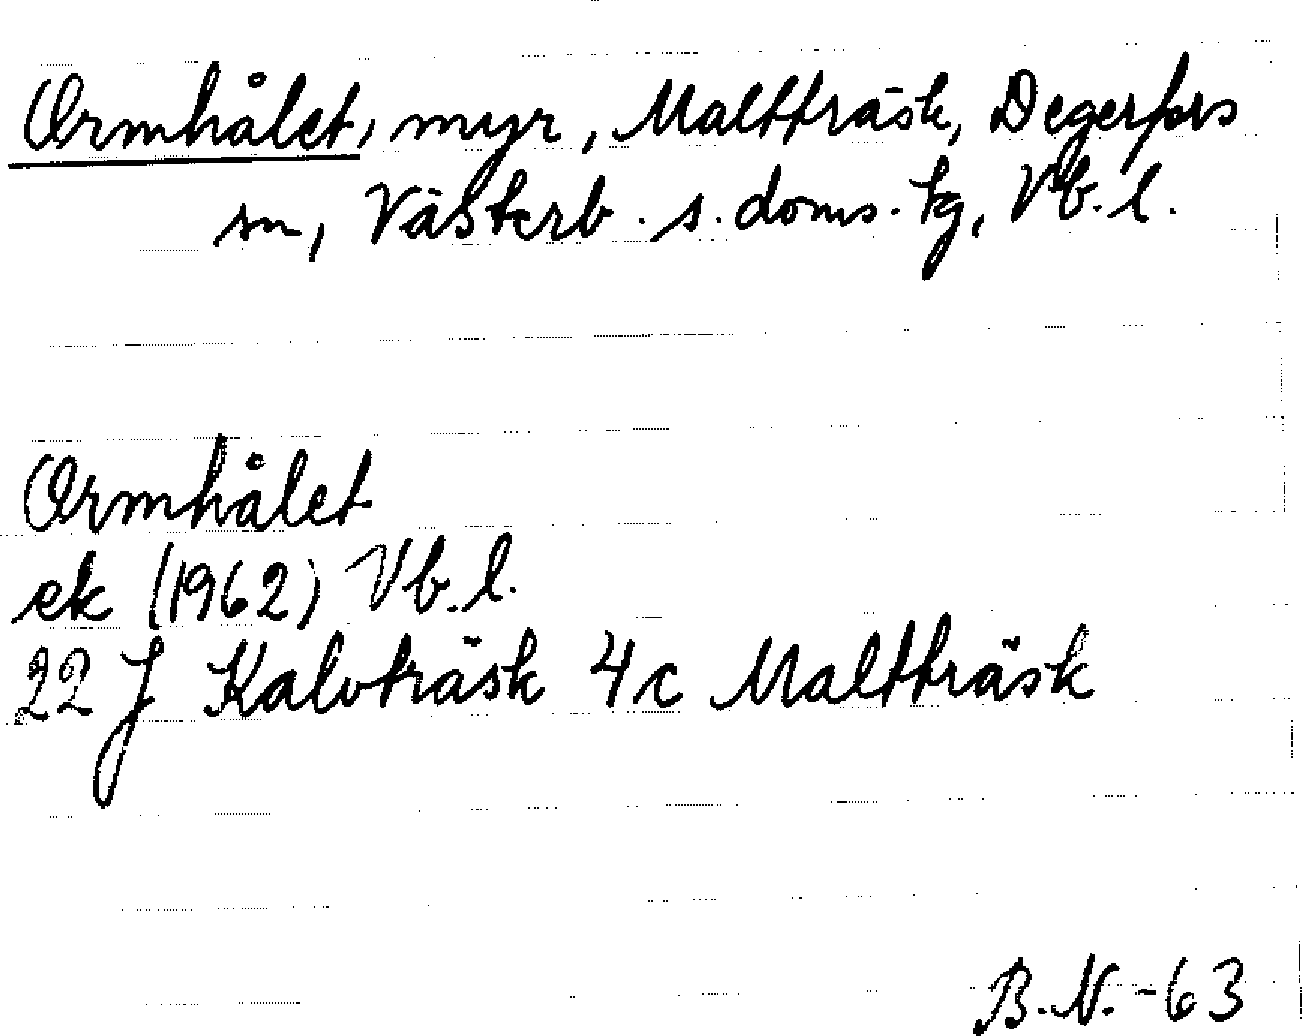 Ormhålet, myr, Maltträsk, Degerfors
sn, Västerb. s. doms. tg, Vb. l.
Ormhålet
ek (1962) Vb. l.
22 J Kalvträsk 4c Maltträsk
B.N.-63